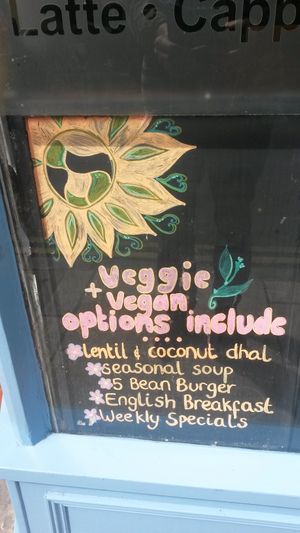 Latte • Capp
Veggie
+ vegan
options include
....
lentil & coconut dhal
seasonal soup
5 Bean Burger
English Breakfast
Weekly Specials